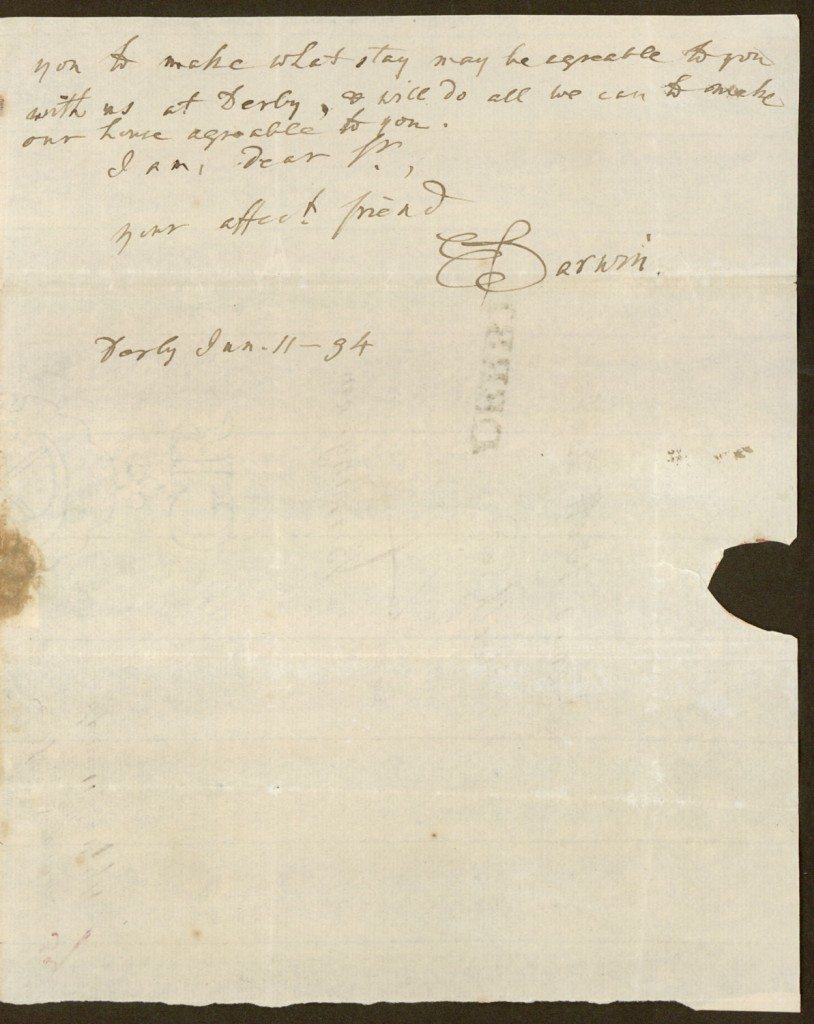 you to make what stay may be agreable to you
with us at Derby, & will do all we can to make
our house agreable to you.
I am, dear Sr.,
your affect. friend
E Darwin.
Derby Jun. 11 - 94
DERBY